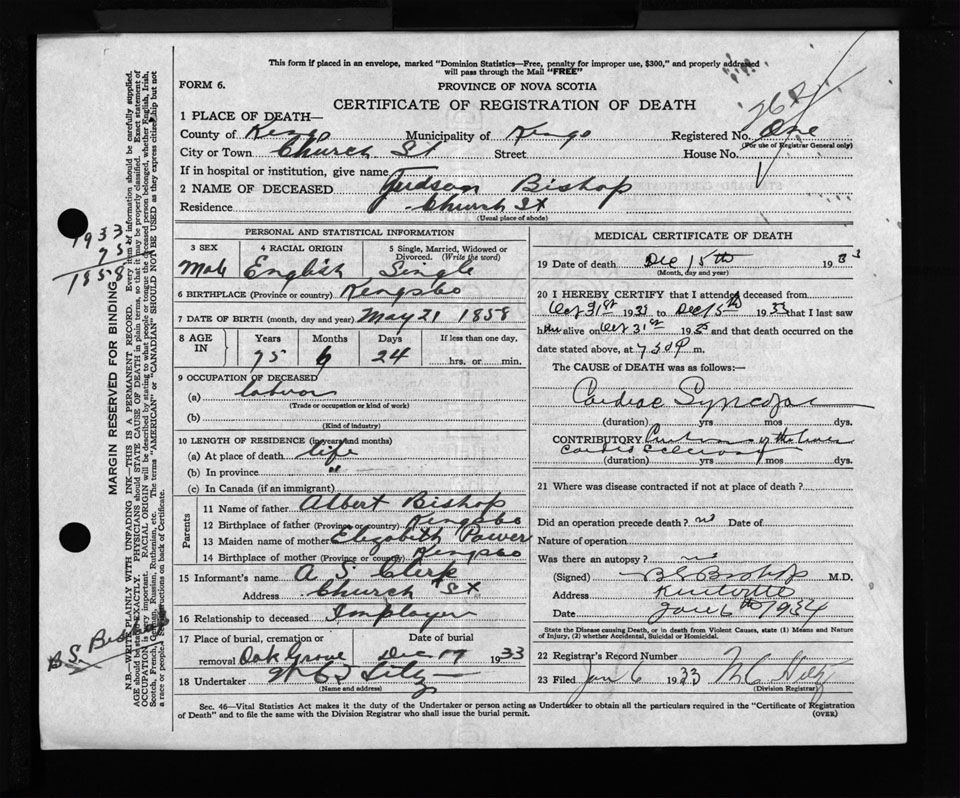 This form if placed in an envelope, marked "Dominion Statistics—Free, penalty for improper use, $300," and properly addressed
will pass through the Mail "FREE"
FORM 6.
PROVINCE OF NOVA SCOTIA
CERTIFICATE OF REGISTRATION OF DEATH
1 PLACE OF DEATH—
County of Kings Municipality of Kings Registered No. One
(For use of Registrar General only)
City or Town Church St Street House No.
If in hospital or institution, give name
2 NAME OF DECEASED Judson Bishop
Residence Church St
(Usual place of abode)
PERSONAL AND STATISTICAL INFORMATION
3 SEX 4 RACIAL ORIGIN 5 Single, Married, Widowed or
Divorced. (Write the word)
Male English Single
6 BIRTHPLACE (Province or country) Kings Co
7 DATE OF BIRTH (month, day and year) May 21 1858
8 AGE IN Years Months Days If less than one day,
75 6 24 hrs. or min.
9 OCCUPATION OF DECEASED
(a) labour
(Trade or occupation or kind of work)
(b)
(Kind of industry)
10 LENGTH OF RESIDENCE (in years and months)
(a) At place of death life
(b) In province "
(c) In Canada (if an immigrant)
Parents
11 Name of father Albert Bishop
12 Birthplace of father (Province or country) Kings Co
13 Maiden name of mother Elizabeth Power
14 Birthplace of mother (Province or country) Kings Co
15 Informant's name A S Clerk
Address Church St
16 Relationship to deceased Imployer
17 Place of burial, cremation or Date of burial
removal Oak Grove Dec 17 1933
18 Undertaker
(Name and address)
MEDICAL CERTIFICATE OF DEATH
19 Date of death Dec 15th 1933
(Month, day and year)
20 I HEREBY CERTIFY that I attended deceased from
Oct 31st 1933 to Dec 15th 1933 that I last saw
him alive on Oct 31st 1933 and that death occurred on the
date stated above, at 7 30 P m.
The CAUSE of DEATH was as follows:—
Cardiac Syncope
(duration) yrs mos dys.
CONTRIBUTORY
(duration) yrs mos dys.
21 Where was disease contracted if not at place of death?
Did an operation precede death? no Date of
Nature of operation
Was there an autopsy? no
(Signed) B S Bishop M.D.
Address Kentville
Date Jan 6th 1934
State the Disease causing Death, or in death from Violent Causes, state (1) Means and Nature
of Injury, (2) whether Accidental, Suicidal or Homicidal.
22 Registrar's Record Number
23 Filed Jan 6 1933
(Division Registrar)
Sec. 46—Vital Statistics Act makes it the duty of the Undertaker or person acting as Undertaker to obtain all the particulars required in the "Certificate of Registration
of Death" and to file the same with the Division Registrar who shall issue the burial permit.
(OVER)
MARGIN RESERVED FOR BINDING
N.B.—WRITE PLAINLY WITH UNFADING INK—THIS IS A PERMANENT RECORD. Every item of information should be carefully supplied.
AGE should be stated EXACTLY. PHYSICIANS should STATE CAUSE OF DEATH in plain terms, so that it may be properly classified. Exact statement of
OCCUPATION is very important. RACIAL ORIGIN will be described by stating to what people or tongue the deceased person belonged, whether English, Irish,
Scotch, French, German, Russian, Ruthenian, etc. The terms "AMERICAN" or "CANADIAN" SHOULD NOT BE USED as they express citizenship but not
a race or people. See instructions on back of Certificate.
1933
75
1858
B.S. Bishop